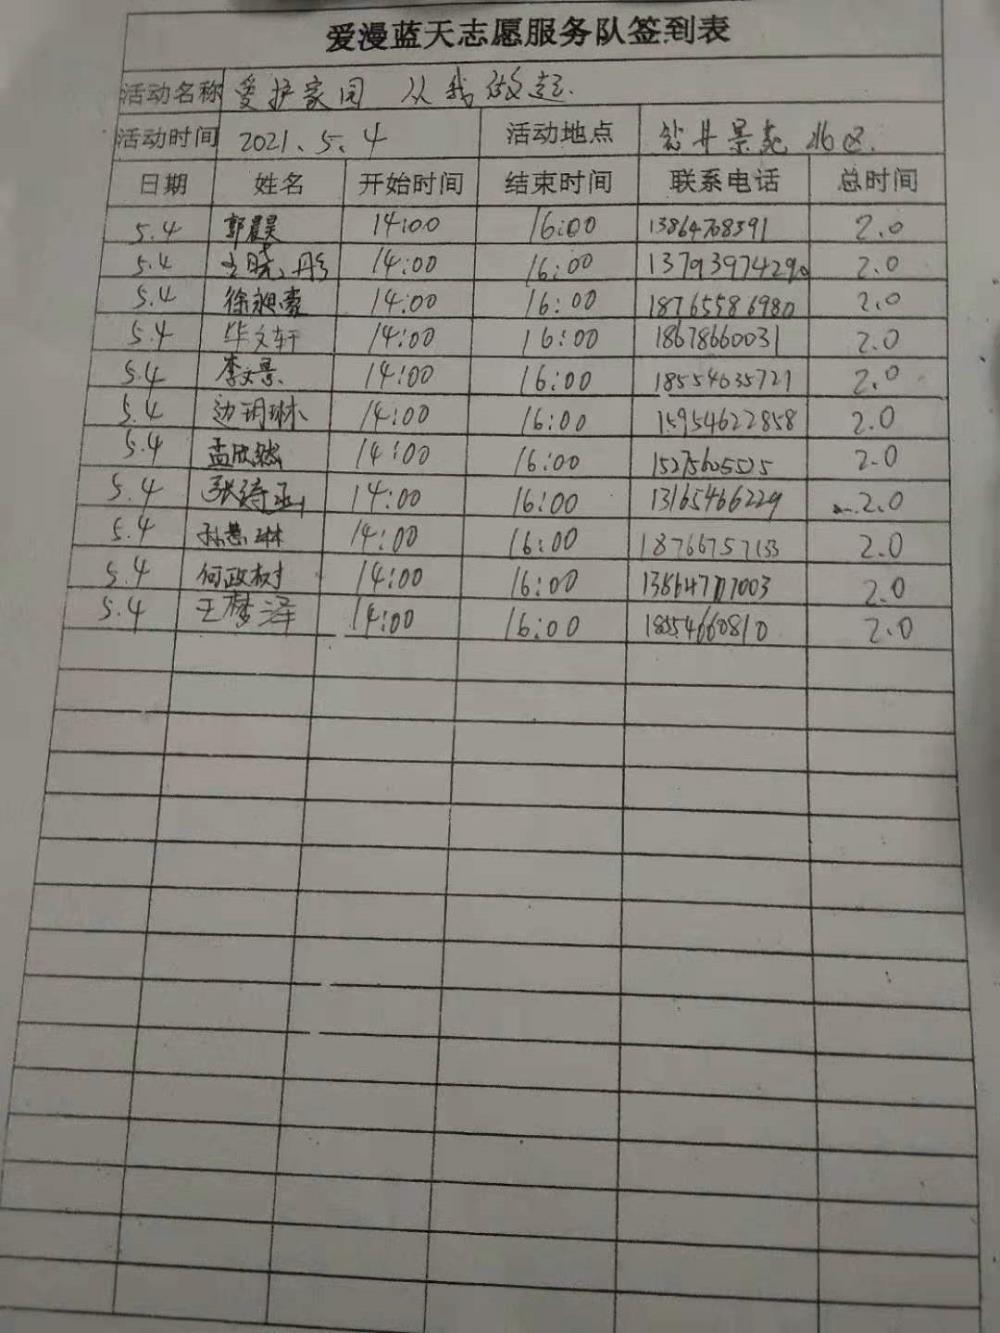 爱漫蓝天志愿服务队签到表
活动名称 爱护家园 从我做起.
活动时间 2021.5.4 活动地点 钻井景苑 北区.
日期 姓名 开始时间 结束时间 联系电话 总时间
5.4 郭晨昊 14:00 16:00 13864708391 2.0
5.4 王晓彤 14:00 16:00 13793974290 2.0
5.4 徐昶豪 14:00 16:00 18765586980 2.0
5.4 毕文轩 14:00 16:00 18678660031 2.0
5.4 李文景 14:00 16:00 18554635721 2.0
5.4 边玥琳 14:00 16:00 15954622858 2.0
5.4 孟欣然 14:00 16:00 15275605525 2.0
5.4 张诗函 14:00 16:00 13165466229 2.0
5.4 孙慧琳 14:00 16:00 18766757133 2.0
5.4 何政树 14:00 16:00 2.0
5.4 王梦泽 14:00 16:00 18554660810 2.0